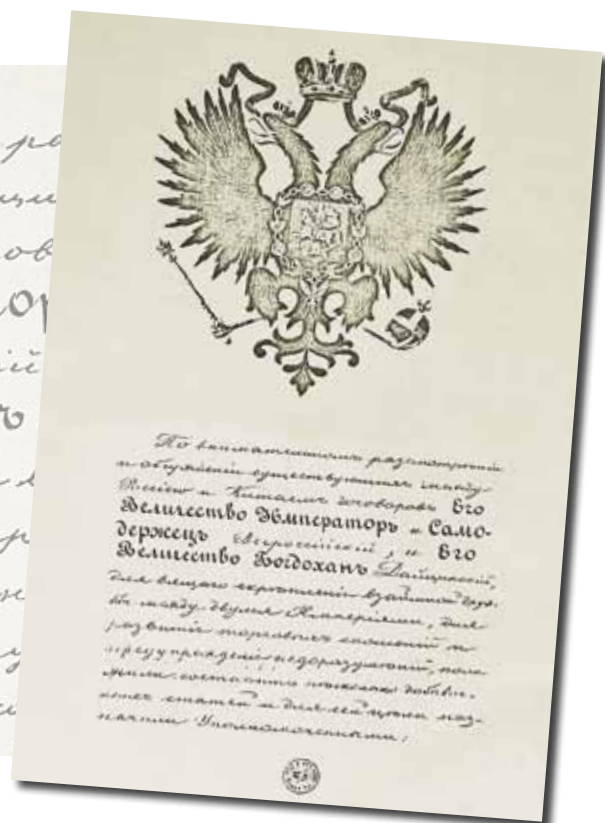 По внимательномъ разсмотрѣніи
и обсужденіи существующихъ между
Россіею и Китаемъ договоровъ Его
Величество Императоръ и Само-
держецъ Всероссійскій, и Его
Величество Богдоханъ Дайцинскій,
для вящаго скрѣпленія взаимной друж-
бы между двумя Имперіями, для
развитія торговыхъ сношеній и
предупрежденія недоразумѣній, поло
жили составить нѣсколько добавоч.
ныхъ статей и для сей цѣли наз-
начили Уполномоченными: